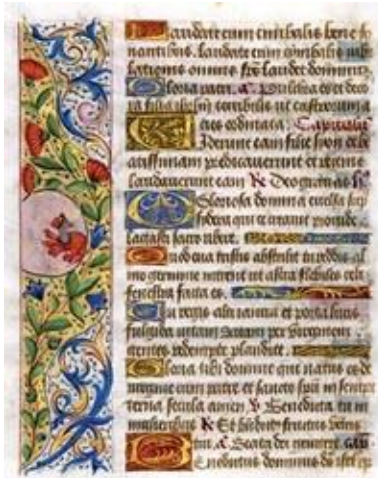 Laudate eum cimbalis bene so
nantibus. laudate eum cimbalis iubi
lationis omnis sps laudet dominum
Gloria patri. a. Pulchra es et deco
ra filia iherlm terribilis ut castrorum a
cies ordinata. Capitulum
Viderunt eam filie syon et be
atissimam predicaverunt et regine
laudaverunt eam R Deo gratias
O Gloriosa domina excelsa sup
sydera qui te creavit provide
lactasti sacro ubere.
Quod eva tristis abstulit tu reddis al
mo germine intrent ut astra flebiles celi
fenestra facta es.
Tu regis alti ianua et porta lucis
fulgida vitam datam per virginem
gentes redempte plaudite.
Gloria tibi domine qui natus es de
virgine cum patre et sancto spu in sempi
terna secula amen V Benedicta tu in
mulieribus R Et benedictus fructus ventris
tui. a. Beata dei genitrix
Benedictus dominus deus